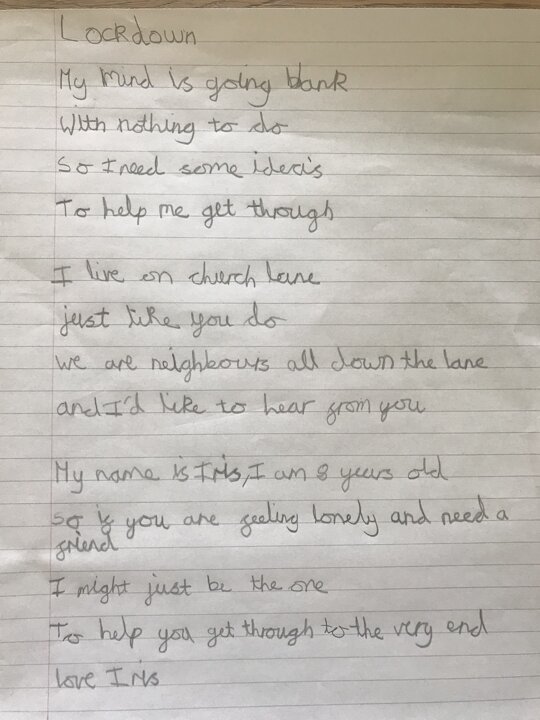 Lockdown
My mind is going blank
With nothing to do
So I need some ideas
To help me get through
I live on church lane
just like you do
we are neighbours all down the lane
and I'd like to hear from you
My name is Iris, I am 8 years old
so if you are feeling lonely and need a
friend
I might just be the one
To help you get through to the very end
love Iris